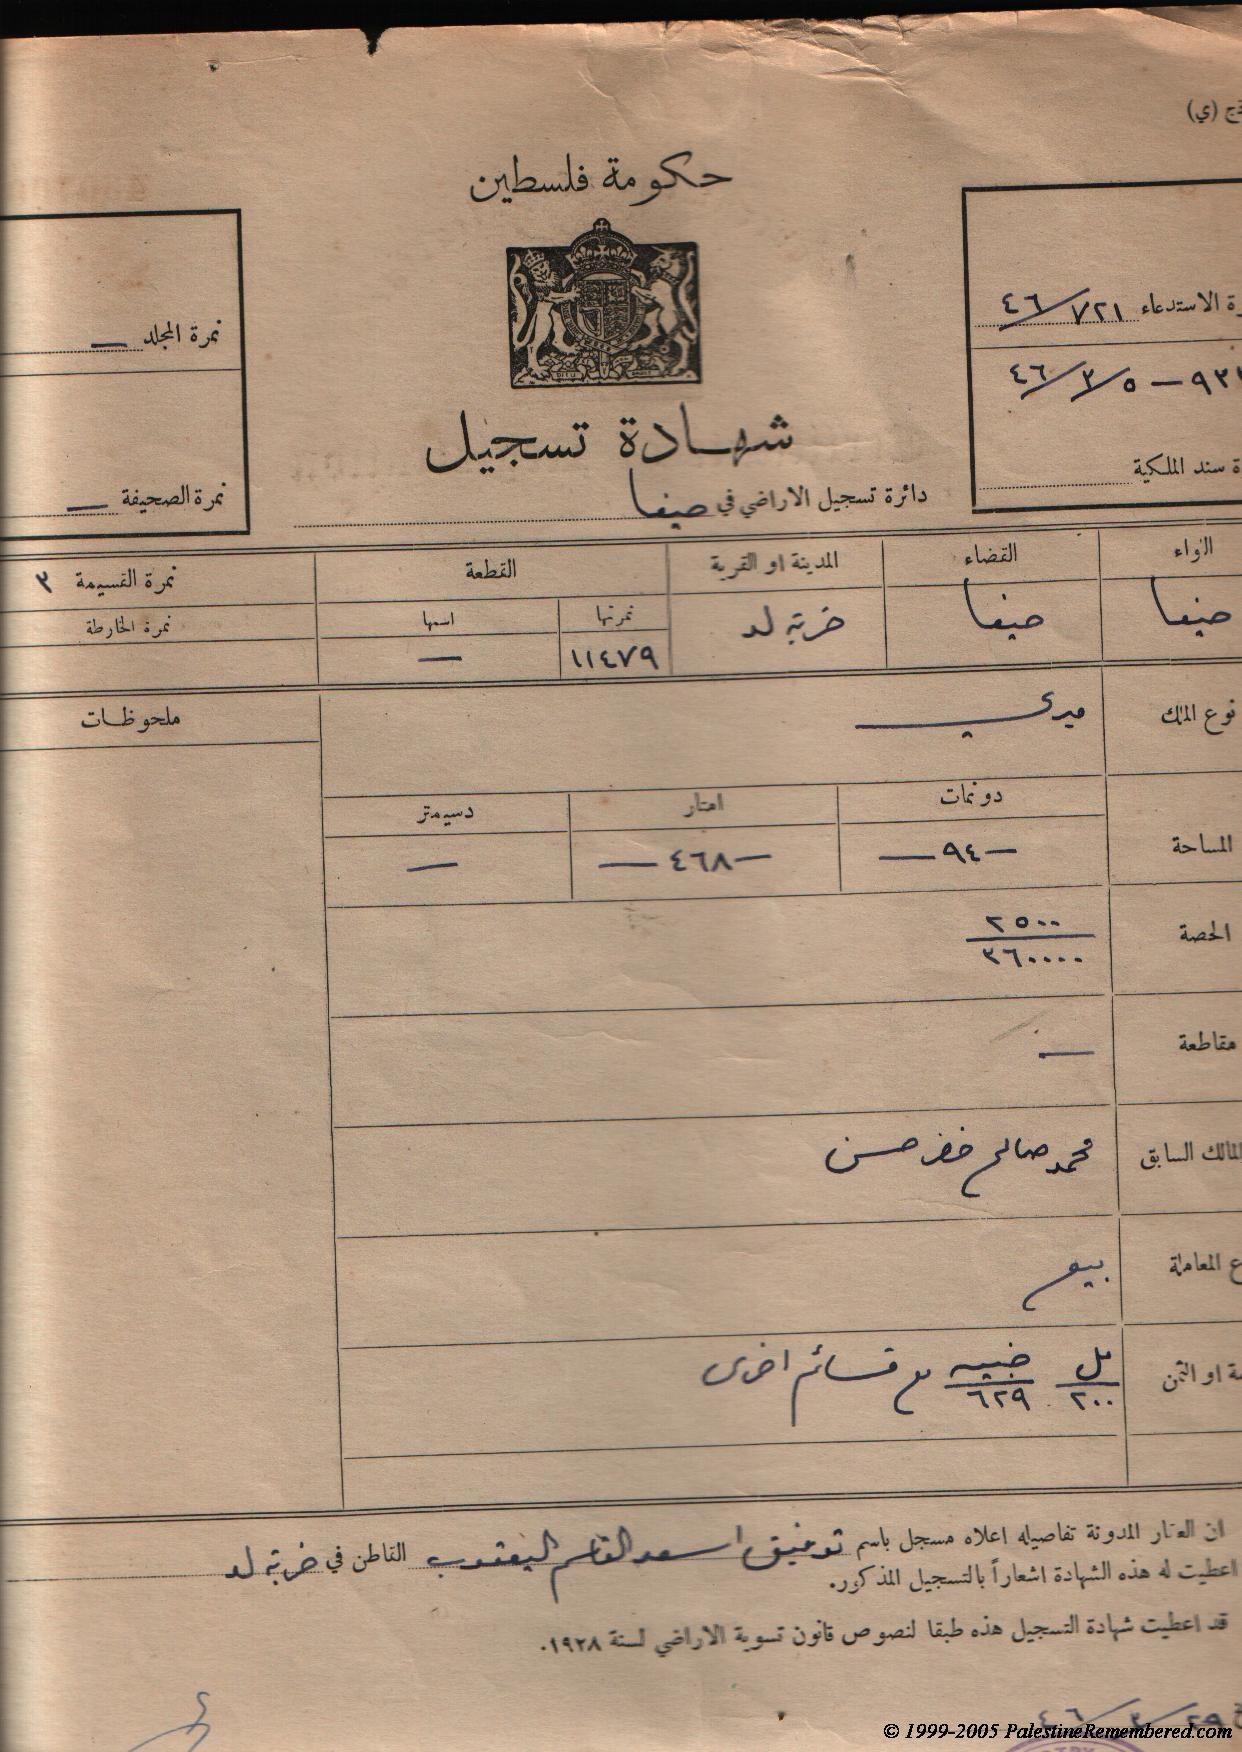 (ي)
حكومة فلسطين
الاستدعاء ٧٢١/٤٦
٥/٣/٤٦
سند الملكية
نمرة المجلد —
نمرة الصحيفة —
شهادة تسجيل
دائرة تسجيل الاراضي في حيفا
اللواء القضاء المدينة او القرية القطعة نمرة القسيمة ٣
نمرتها اسمها نمرة الخارطة
حيفا حيفا خربة لد ١١٤٧٩ —
نوع الملك ميري
ملحوظات
المساحة دونمات امتار دسيمتر
—٩٤— —٤٦٨— —
الحصة ٢٥٠٠/٣٦٠٠٠٠
مقاطعة —
المالك السابق محمد صالح خضر حسن
المعاملة بيع
او الثمن مل ٢٠٠ جنيه ٦٢٩ مع قسائم اخرى
ان العقار المدونة تفاصيله اعلاه مسجل باسم توفيق اسعد القاسم اليعقوب القاطن في خربة لد
اعطيت له هذه الشهادة اشعاراً بالتسجيل المذكور.
قد اعطيت شهادة التسجيل هذه طبقا لنصوص قانون تسوية الاراضي لسنة ١٩٢٨.
٢٩/٣/٤٦
© 1999-2005 PalestineRemembered.com